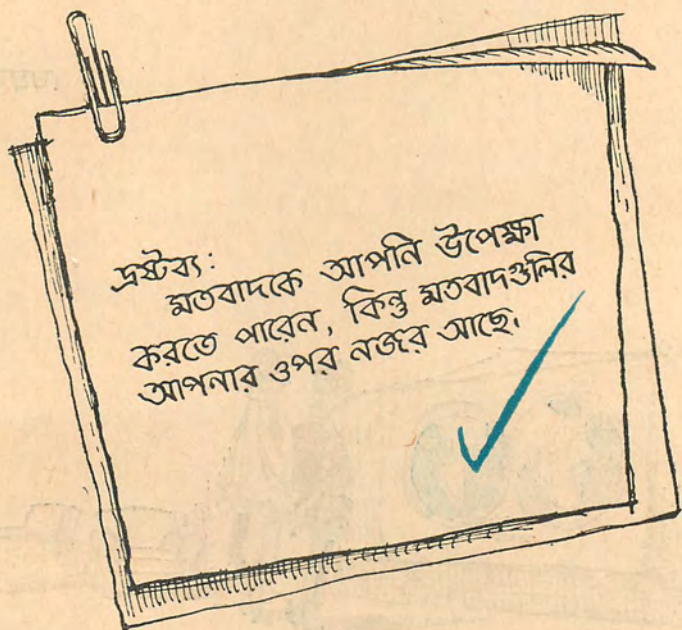 দ্রষ্টব্য:
মতবাদকে আপনি উপেক্ষা
করতে পারেন, কিন্তু মতবাদগুলির
আপনার ওপর নজর আছে.